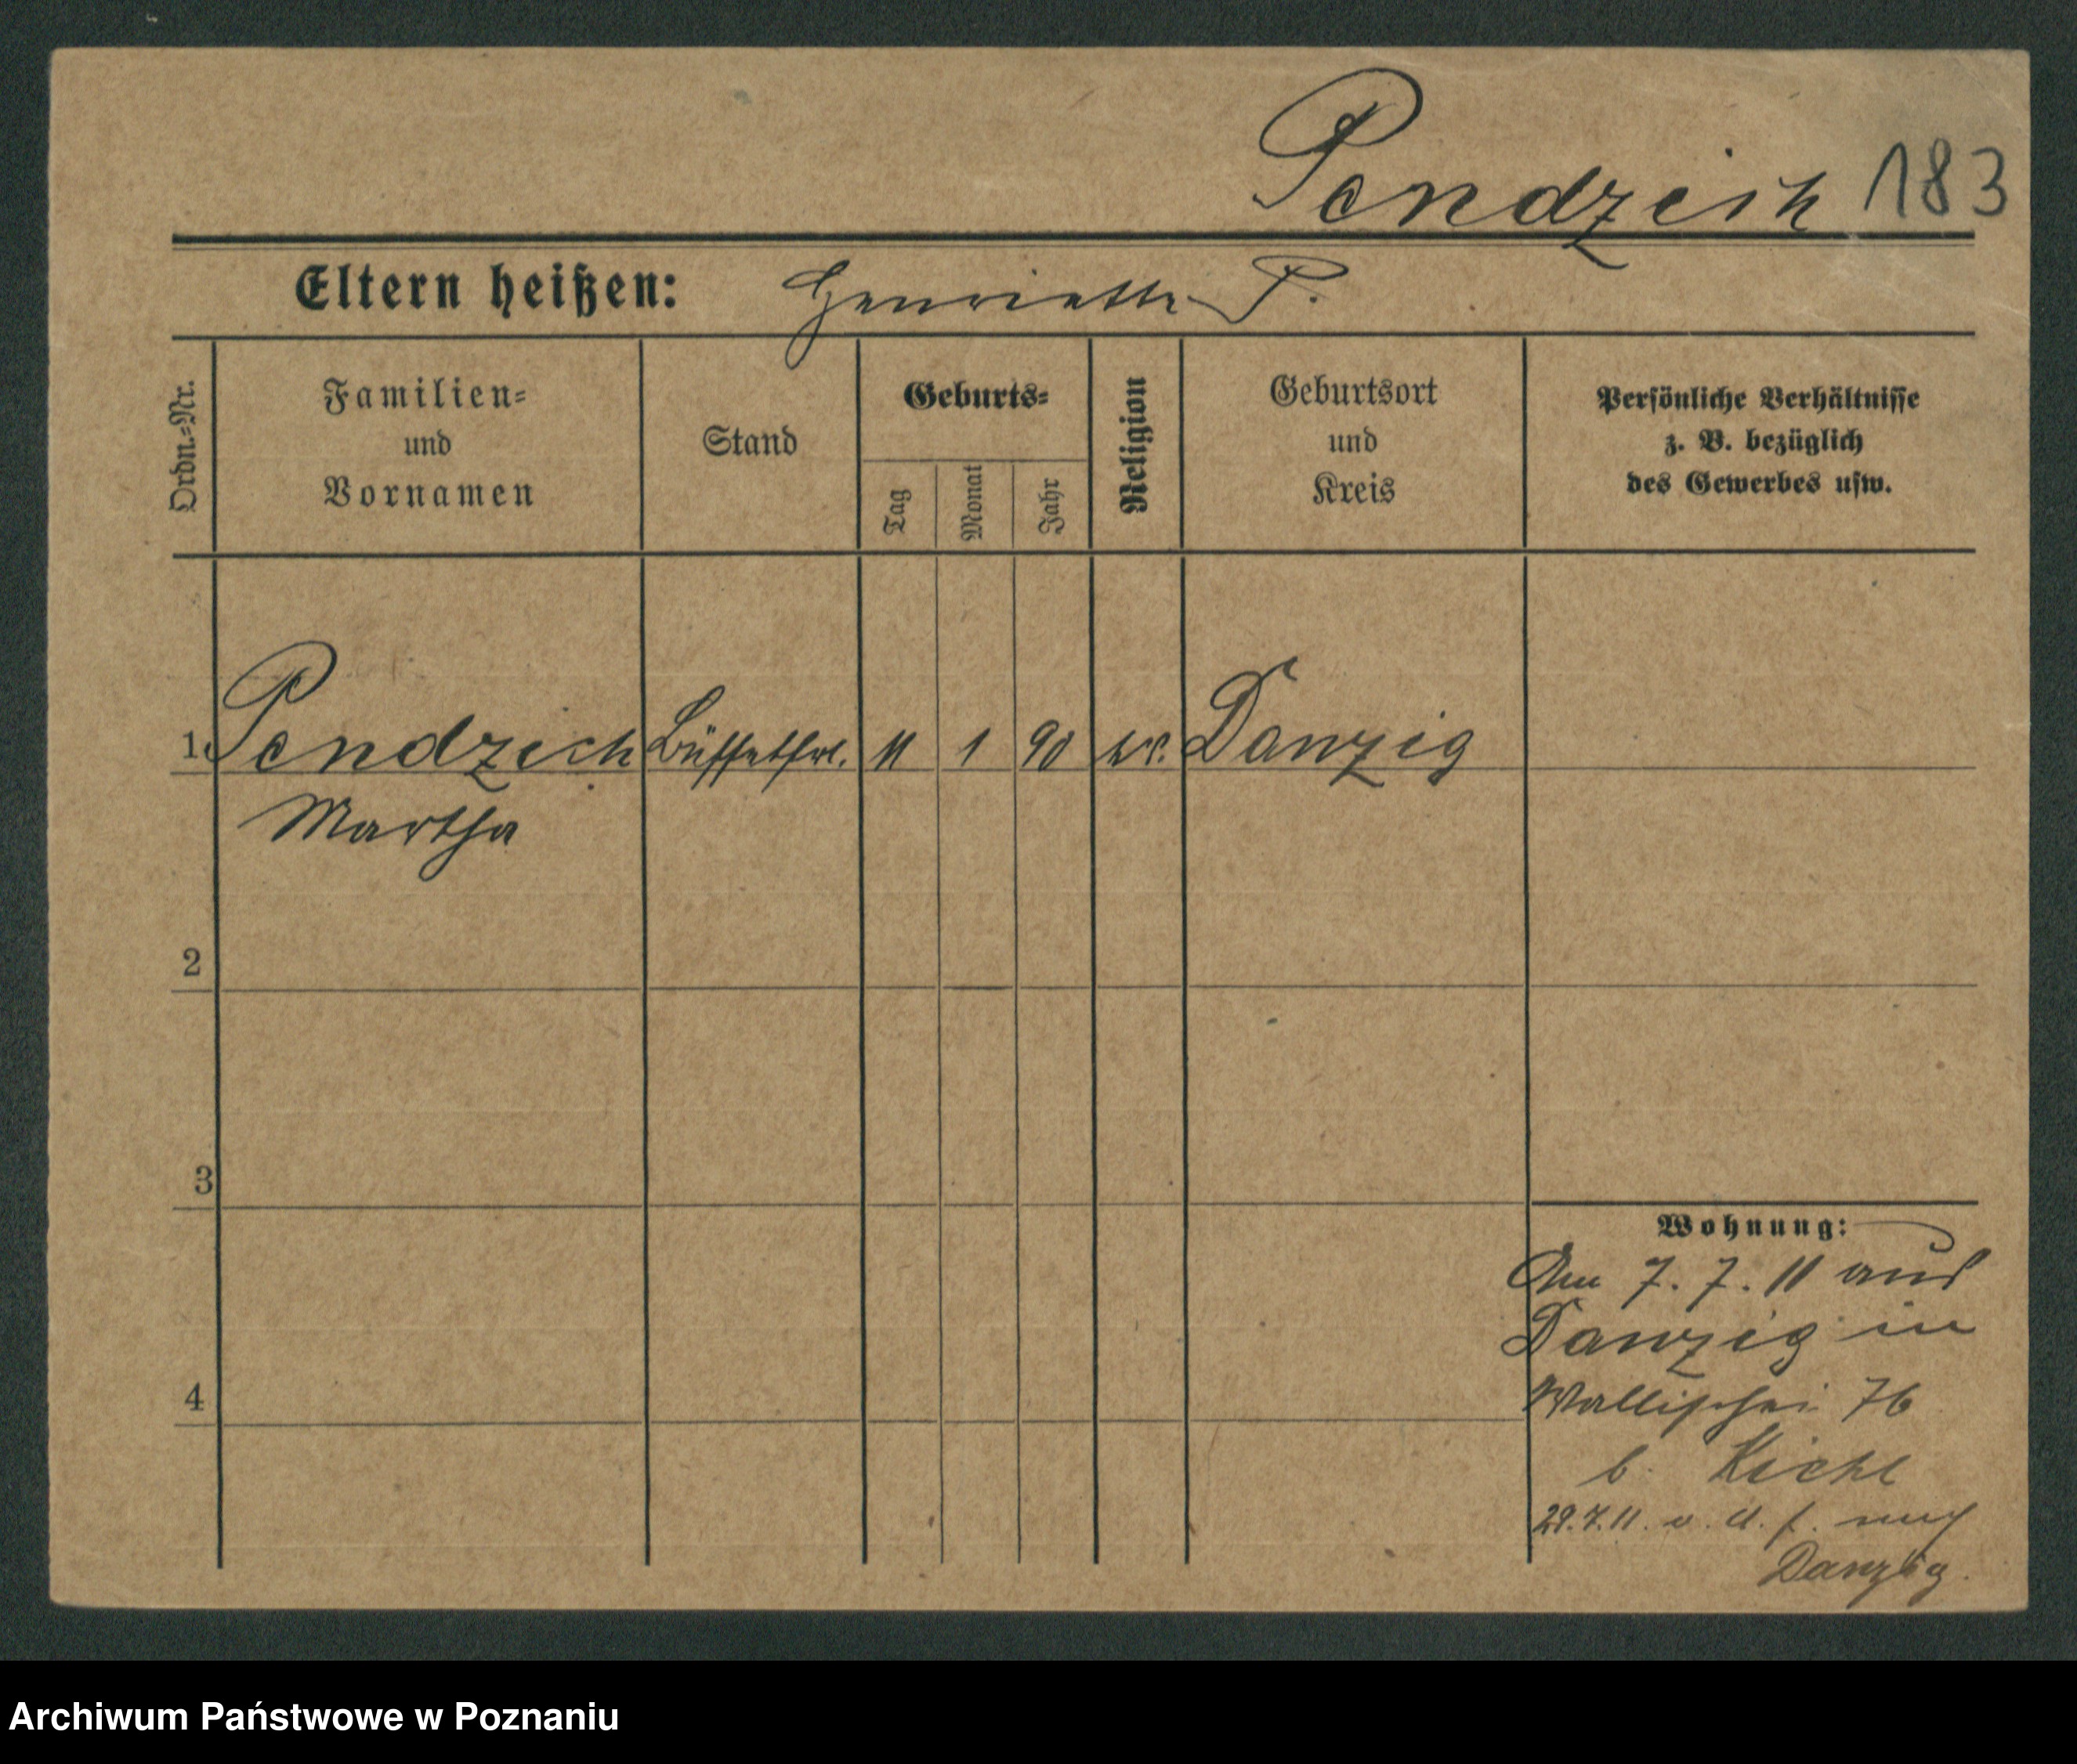 Pendzich 183
Eltern heißen: Henriette P.
Ordn.=Nr.
Familien=
und
Vornamen
Stand
Geburts=
Tag
Monat
Jahr
Religion
Geburtsort
und
Kreis
Persönliche Verhältnisse
z. B. bezüglich
des Gewerbes usw.
1. Pendzich Büffetfrl. 11 1 90 Danzig
Martha
2
3
4
Wohnung:
Am 7. 7. 11 aus
Danzig in
Wallischei 76
b. Kiehl
29.7.11. v. d. f. nach
Danzig.
Archiwum Państwowe w Poznaniu